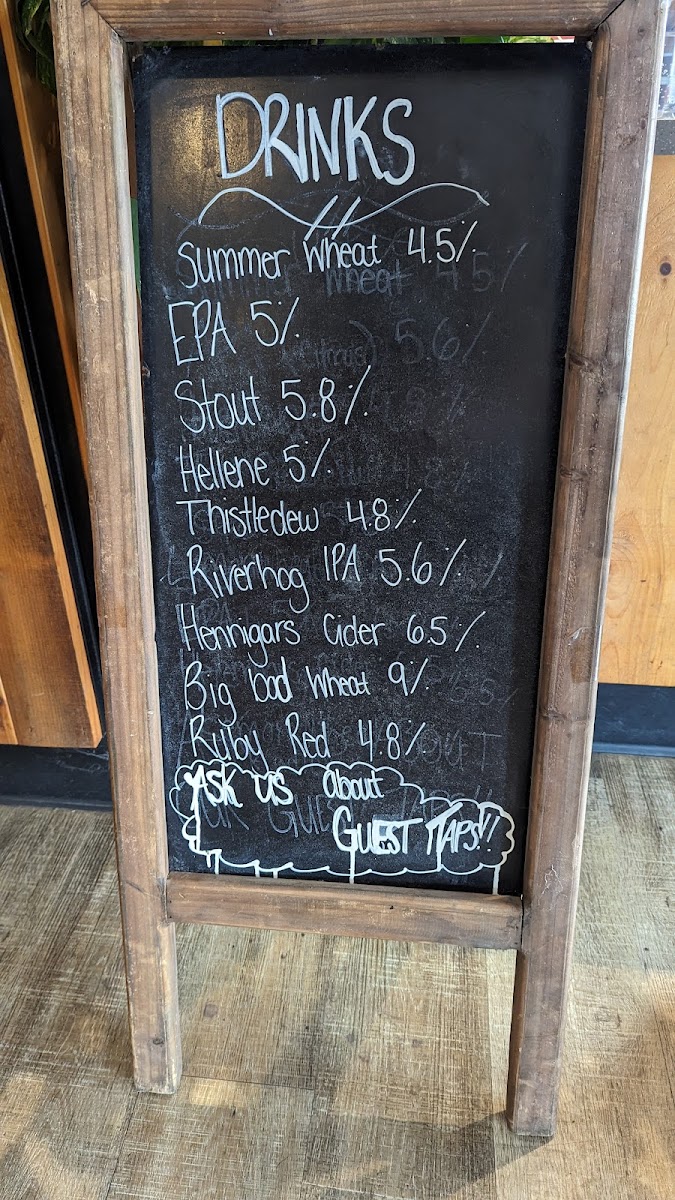 DRINKS
Summer Wheat 4.5%
EPA 5%
Stout 5.8%
Hellene 5%
Thistledew 4.8%
Riverhog IPA 5.6%
Hennigars Cider 6.5%
Big bad Wheat 9%
Ruby Red 4.8%
ASK US About
GUEST TAPS!!